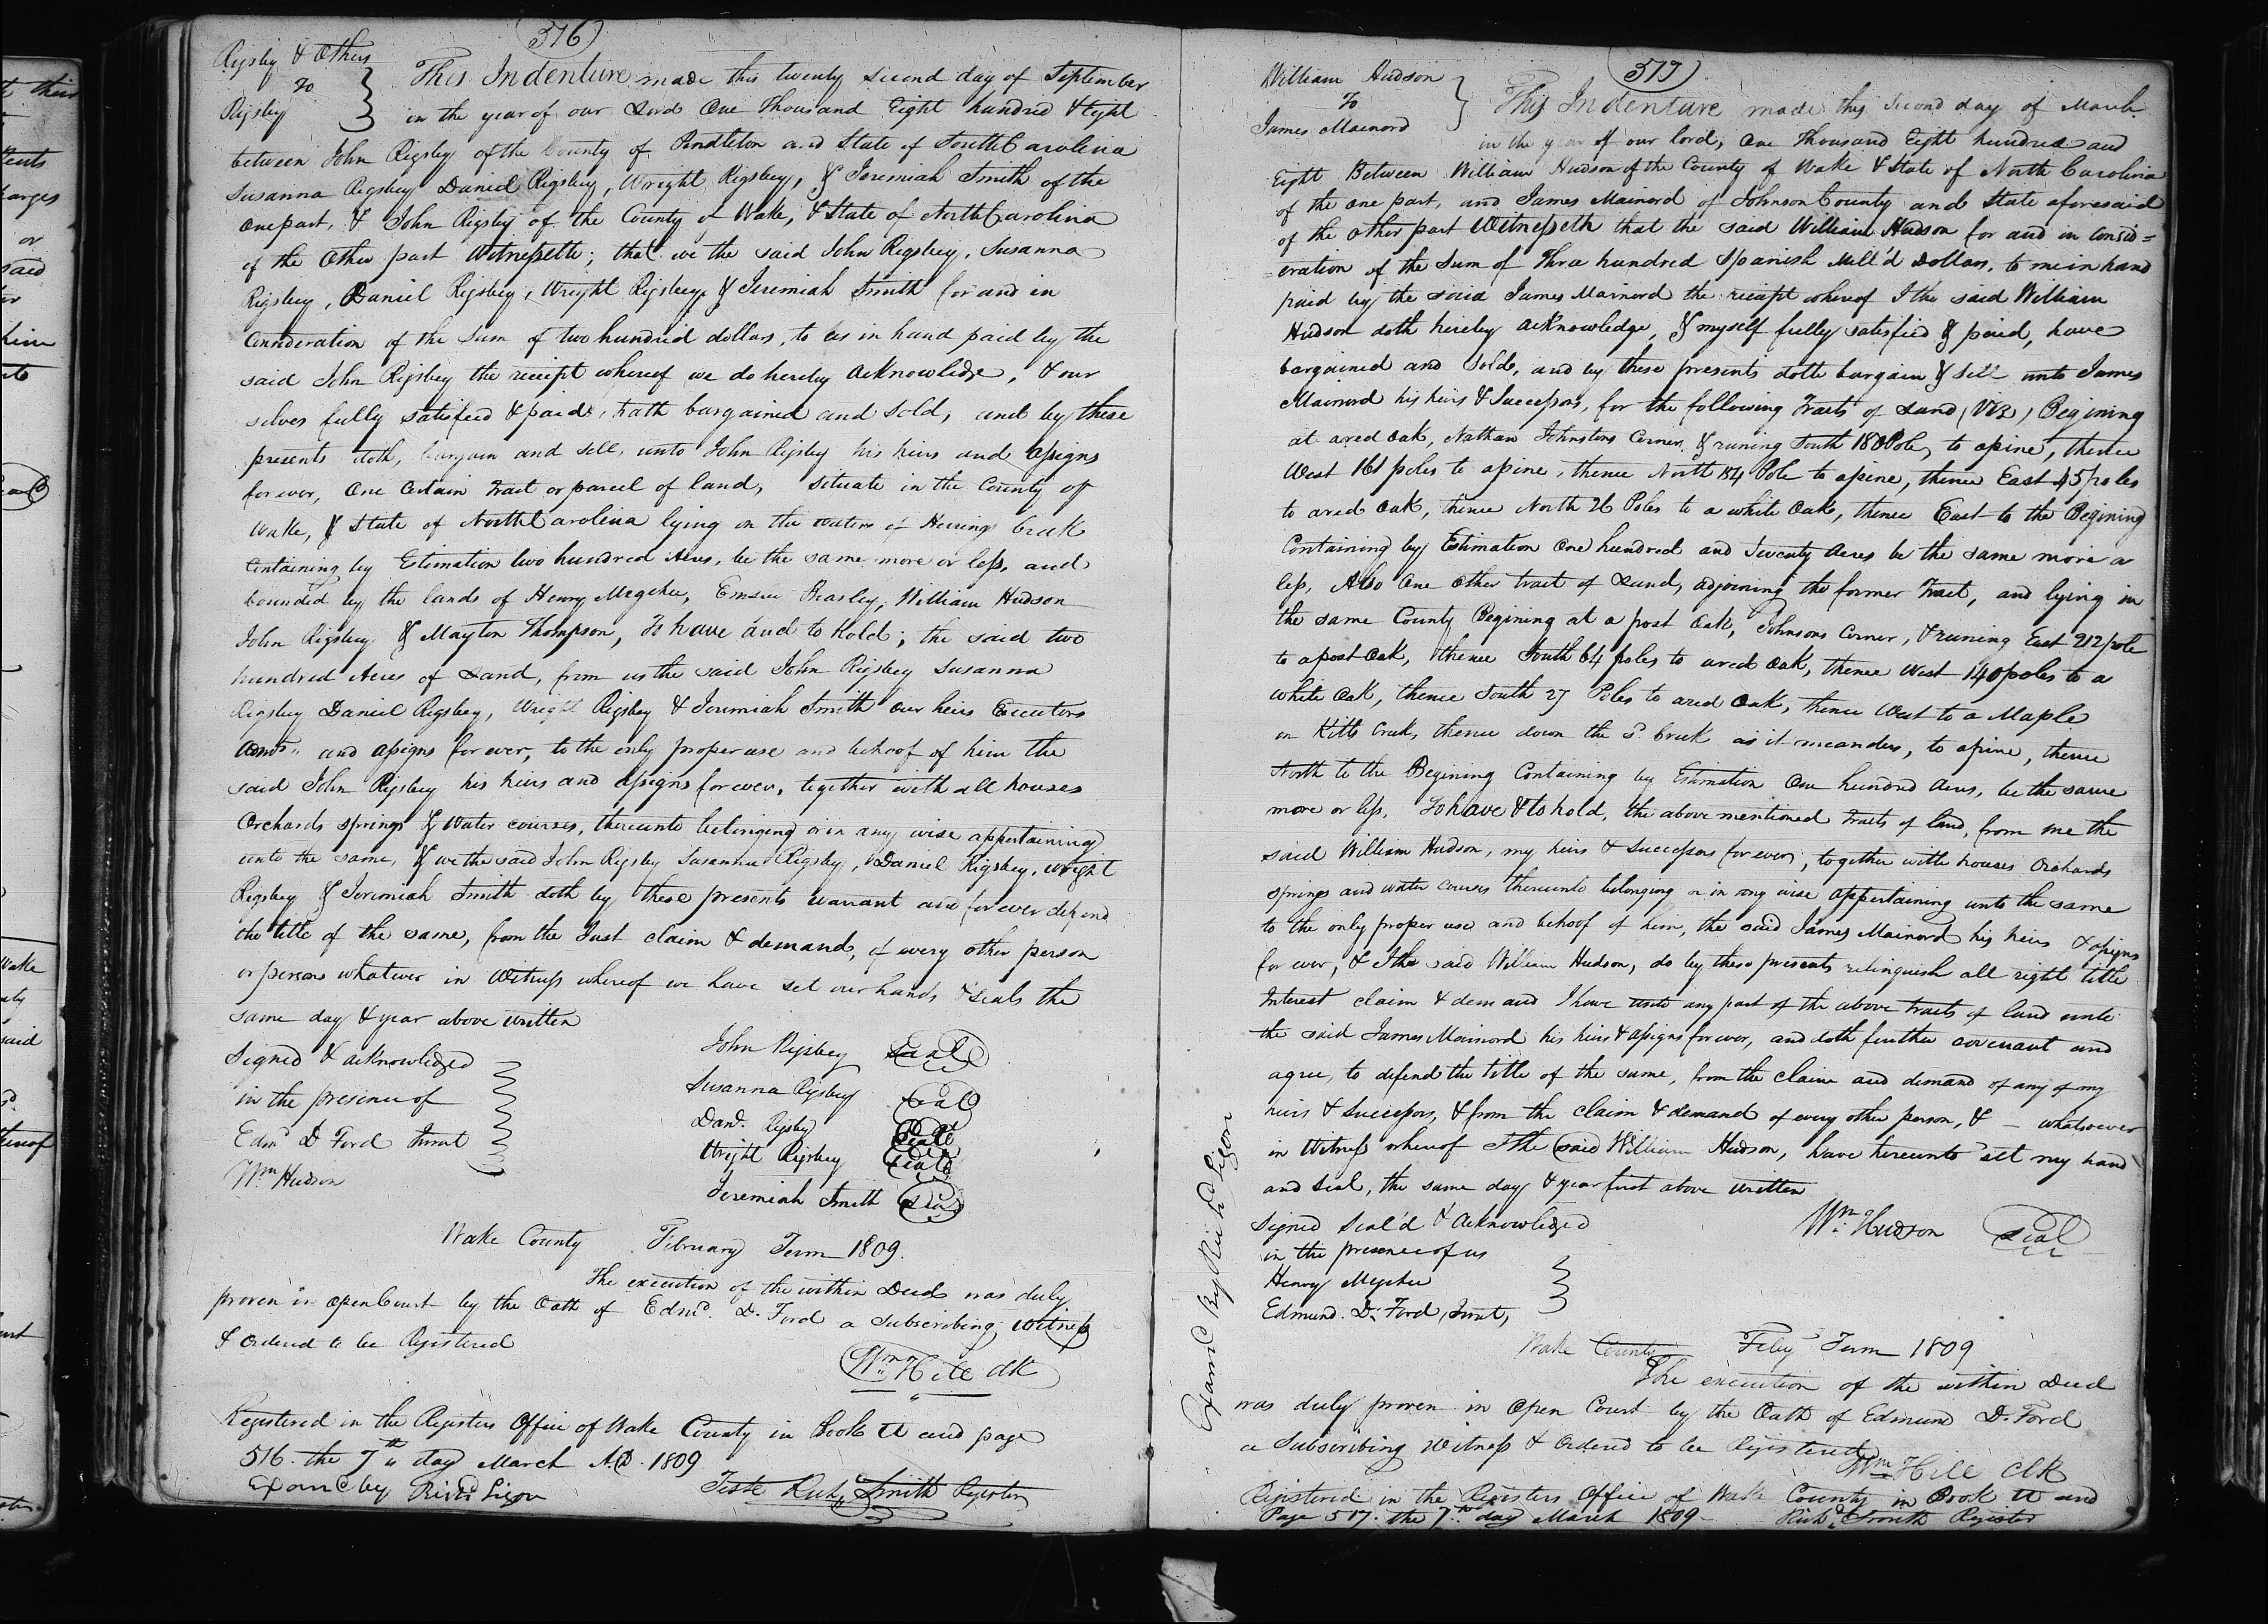 516
Rigsby & Others
To
Rigsby
This Indenture made this twenty second day of September
in the year of our Lord One Thousand Eight hundred & Eight
between John Rigsbey of the County of Pendleton and State of South Carolina
Susanna Rigsbey Daniel Rigsbey, Wright Rigsbey, & Jeremiah Smith of the
One part, & John Rigsby of the County of Wake, & State of North Carolina
of the Other part Witnesseth; that we the said John Rigsbey, Susanna
Rigsbey, Daniel Rigsbey, Wright Rigsbey, & Jeremiah Smith for and in
Consideration of the Sum of two hundred dollars, to us in hand paid by the
said John Rigsbey the receipt whereof we do hereby acknowledge, & our
selves fully satisfied & paid, hath bargained and Sold, and by these
presents doth, bargain and sell, unto John Rigsbey his heirs and assigns
for ever, One Certain Tract or parcel of land, situate in the County of
Wake, & State of North Carolina lying on the waters of Herrings Creek
Containing by Estimation two hundred Acres, be the same more or less, and
bounded by the lands of Henry Magehee, Beasley, William Hudson
John Rigsbey & Mayton Thompson, To have and to hold; the said two
hundred Acres of Land, from us the said John Rigsbey Susanna
Rigsbey Daniel Rigsbey, Wright Rigsbey & Jeremiah Smith our heirs Executors
Admrs. and assigns for ever, to the only proper use and behoof of him the
said John Rigsbey his heirs and assigns for ever, together with all houses
Orchards springs & Water courses, thereunto belonging or in any wise appertaining
unto the same, & we the said John Rigsbey Susanna Rigsbey, Daniel Rigsbey, Wright
Rigsbey & Jeremiah Smith doth by these presents warrant and for ever defend
the title of the same, from the Just claim & demand, of every other person
or persons whatever in Witness whereof we have set our hands & Seals the
same day & year above written
Signed & acknowledged
in the presence of
Edmd. D Ford Jurat
Wm. Hudson
John Rigsbey Seal
Susanna Rigsbey Seal
Danl. Rigsby Seal
Wright Rigsbey Seal
Jeremiah Smith Seal
Wake County February Term 1809.
The execution of the within Deed was duly
proven in Open Court by the Oath of Edmd. D. Ford a Subscribing witness
& Ordered to be Registered
Wm. Hill Clk
Registered in the Registers Office of Wake County in Book U and page
516. the 7th day March A.D. 1809
Examd by Richd Ligon
Teste Richd Smith Register
517
William Hudson
To
James Mainord
This Indenture made this Second day of March
in the year of our lord, One Thousand Eight hundred and
Eight Between William Hudson of the County of Wake & State of North Carolina
of the one part, and James Mainord of Johnson County and State aforesaid
of the other part Witnesseth that the said William Hudson for and in Consid=
=eration of the Sum of Three hundred Spanish Mill'd Dollars, to me in hand
paid by the said James Mainord the receipt whereof I the said William
Hudson doth hereby acknowledge, & myself fully satisfied & paid, have
bargained and Sold, and by these presents doth bargain & Sell unto James
Mainord his heirs & Successors, for the following Tracts of Land, (Viz) Begining
at a red Oak, Nathan Johnstons Corner & runing South 180 Pole, to a pine, thence
West 161 poles to a pine, thence North 154 Pole to a pine, thence East 45 poles
to a red Oak, thence North 26 Poles to a white Oak, thence East to the Begining
Containing by Estimation One hundred and Seventy Acres be the same more or
less, Also One other tract of Land, adjoining the former Tract, and lying in
the same County Begining at a post Oak, Johnsons Corner, & runing East 212 pole
to a post Oak, thence South 64 poles to a red Oak, thence West 140 poles to a
white Oak, thence South 27 Poles to a red Oak, thence West to a Maple
on Kitts Creek, thence down the sd. Creek as it meanders, to a pine, thence
North to the Begining Containing by Estimation One hundred Acres, be the same
more or less, To have & to hold, the above mentioned Tracts of land, from me the
said William Hudson, my heirs & Successors for ever, together with houses Orchards
springs and water courses thereunto belonging or in any wise appertaining unto the same
to the only proper use and behoof of him, the said James Mainord his heirs & assigns
for ever, & I the said William Hudson, do by these presents relinquish all right title
Interest claim & demand I have unto any part of the above tracts of land unto
the said James Mainord his heirs & assigns for ever, and doth further covenant and
agree, to defend the title of the same, from the claim and demand of any of my
heirs & Successors, & from the claim & demand of every other person, & — whatsoever
in Witness whereof I the said William Hudson, have hereunto set my hand
and Seal, the same day & year first above written
Wm. Hudson Seal
Signed Seal'd & Acknowledged
in the presence of us
Henry Megehee
Edmund. D. Ford, Jurat,
Wake County Feby Term 1809
The execution of the within Deed
was duly proven in Open Court by the Oath of Edmund D. Ford
a Subscribing Witness & Ordered to be Registered
Wm Hill Clk
Registered in the Registers Office of Wake County in Book U and
Page 517. the 7th day March 1809
Richd. Smith Register
Examd By Richd Ligon